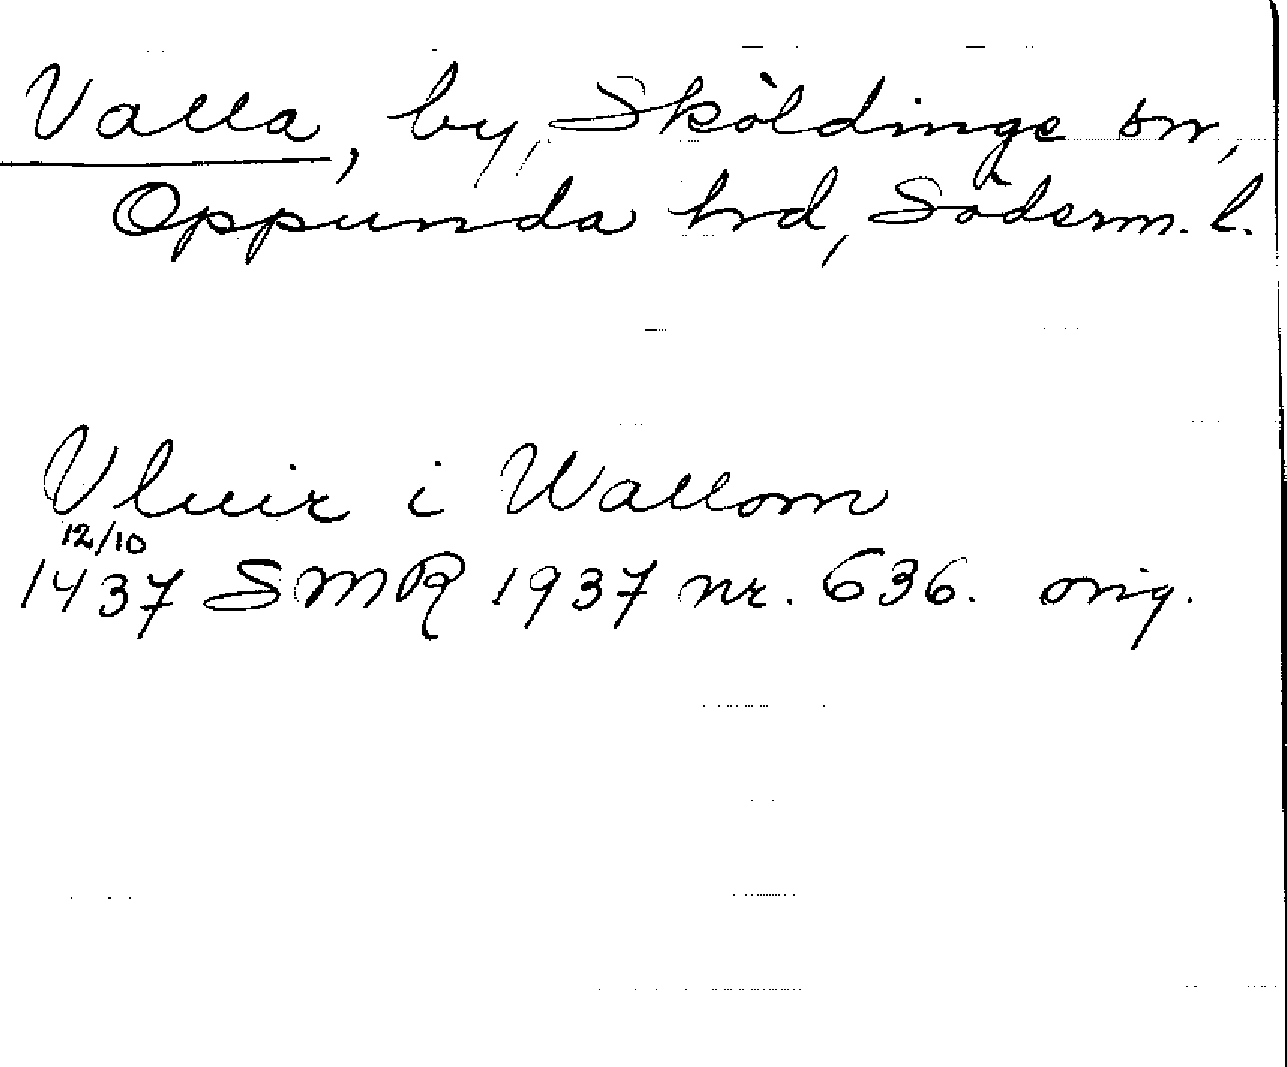 Valla, by, Sköldinge sn,
Oppunda hrd, Söderm. l.
Vluir i Wallom
12/10
1437 SMR 1937 nr. 636. orig.